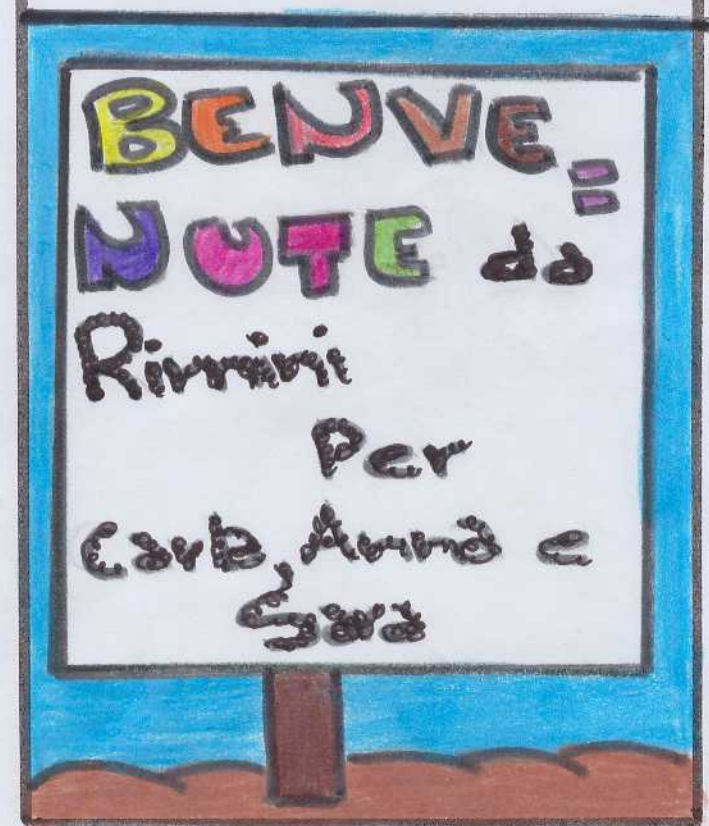 BENVE=
NUTE da
Rimini
Per
Carla, Anna e
Sara